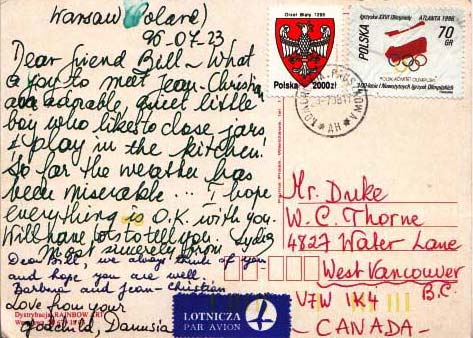 Warsaw (Poland)
96-07-23
Dear friend Bill - What
a joy to meet Jean-Christian
adorable, quiet little
boy who likes to close jars
& play in the kitchen!
So far the weather has
been miserable ... I hope
everything is O.K. with you.
Will have lots to tell you. Lydia
Most sincerely from
Dear Bill: we always think of you
and hope, you are well.
Barbara and Jean-Christian
Love from your
godchild, Danusia
Dystrybucja: RAINBOW ART
Orzeł Biały 1295
Polska 2000zł
Igrzyska XXVI Olimpiady ATLANTA 1996
POLSKA
70
GR
POLSKI KOMITET OLIMPIJSKI
100-lecie Nowożytnych Igrzysk Olimpijskich
Mr. Duke
W. C. Thorne
4827 Water Lane
West Vancouver
B.C.
V7W 1K4
- CANADA -
LOTNICZA
PAR AVION